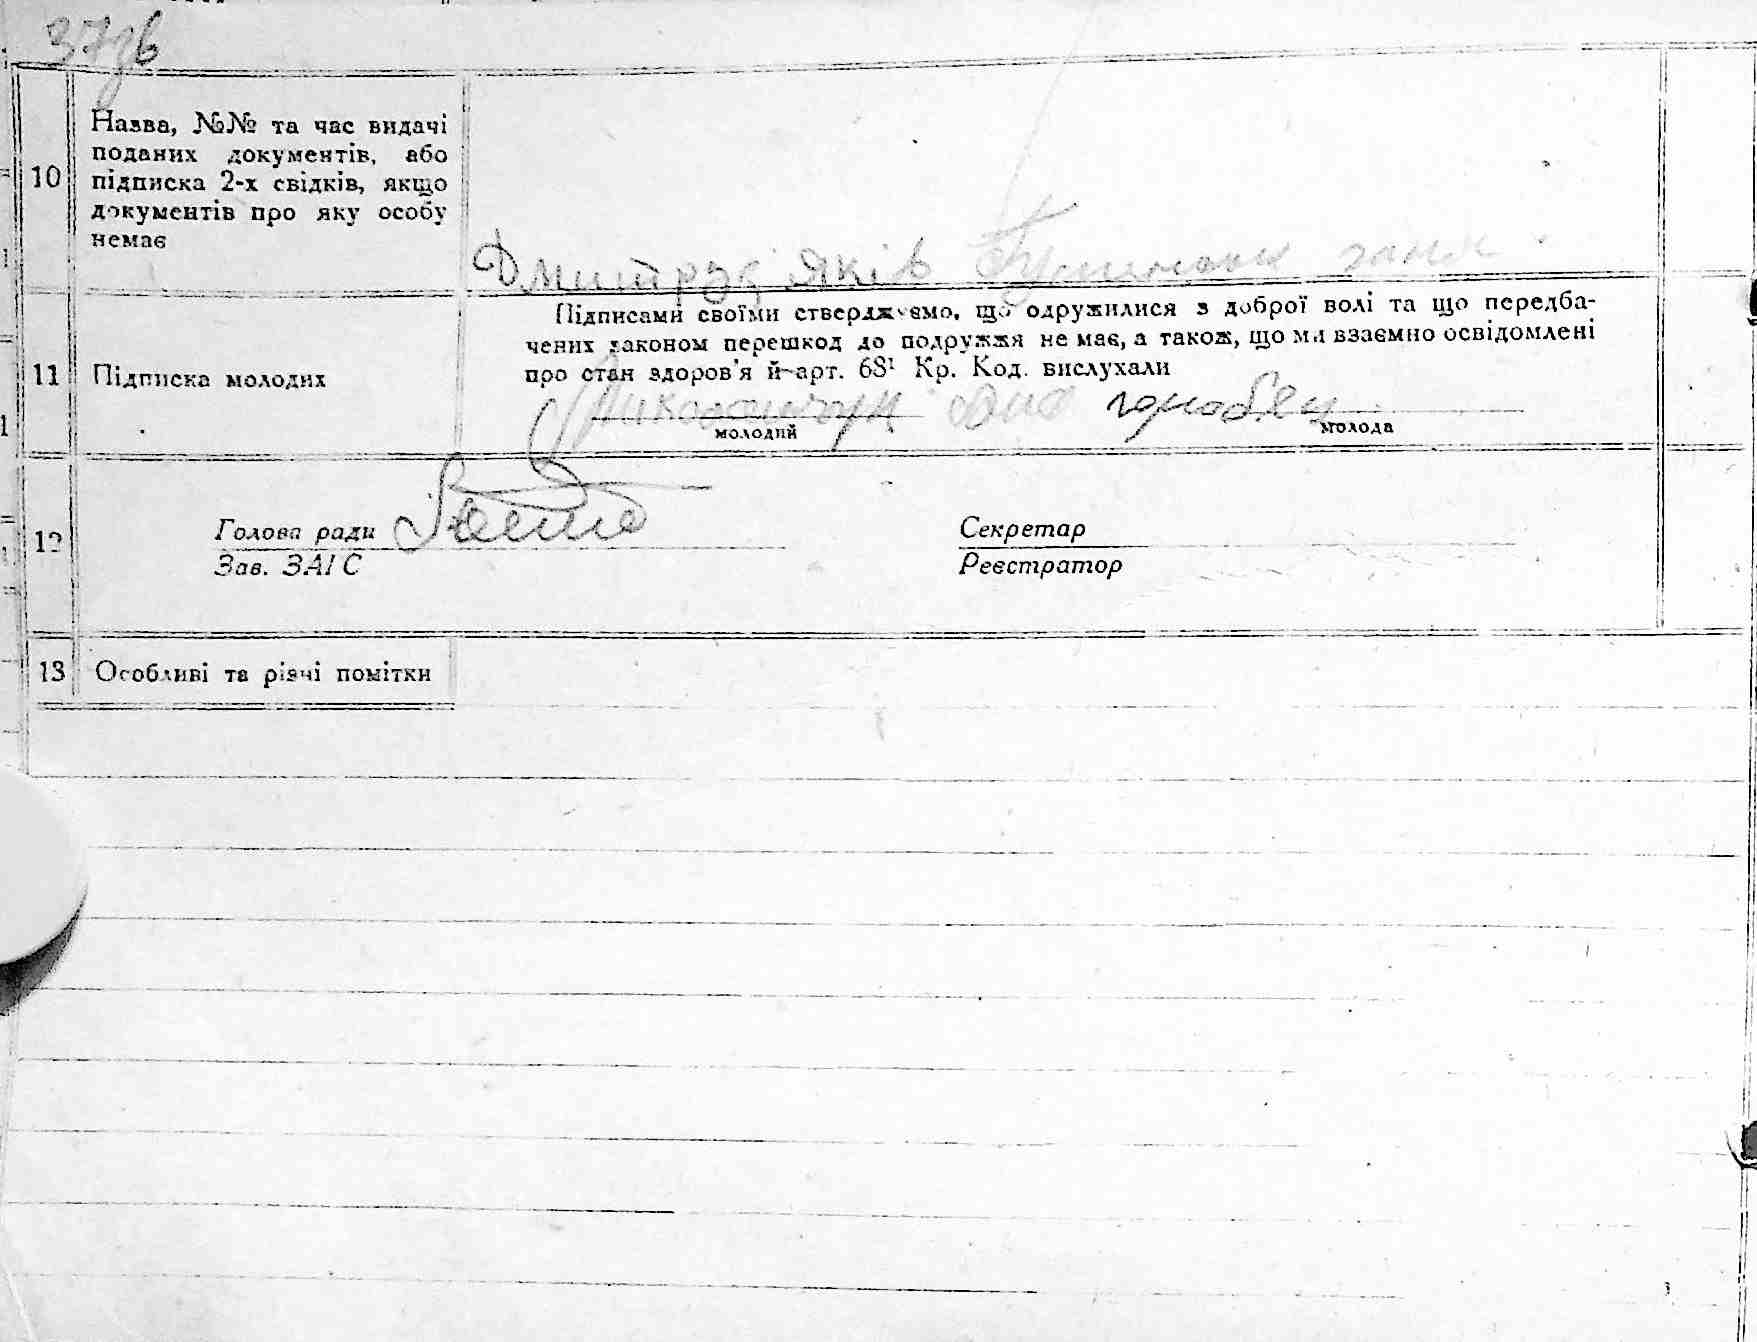 37зв
10
Назва, №№ та час видачі
поданих документів, або
підписка 2-х свідків, якщо
документів про яку особу
немає
Дмитрук Яків
11
Підписка молодих
Підписами своїми стверджуємо, що одружилися з доброї волі та що передба-
чених законом перешкод до подружжя не має, а також, що ми взаємно освідомлені
про стан здоров'я й арт. 68¹ Кр. Код. вислухали
молодий
молода
12
Голова ради
Зав. ЗАГС
Секретар
Реєстратор
13
Особливі та різні помітки